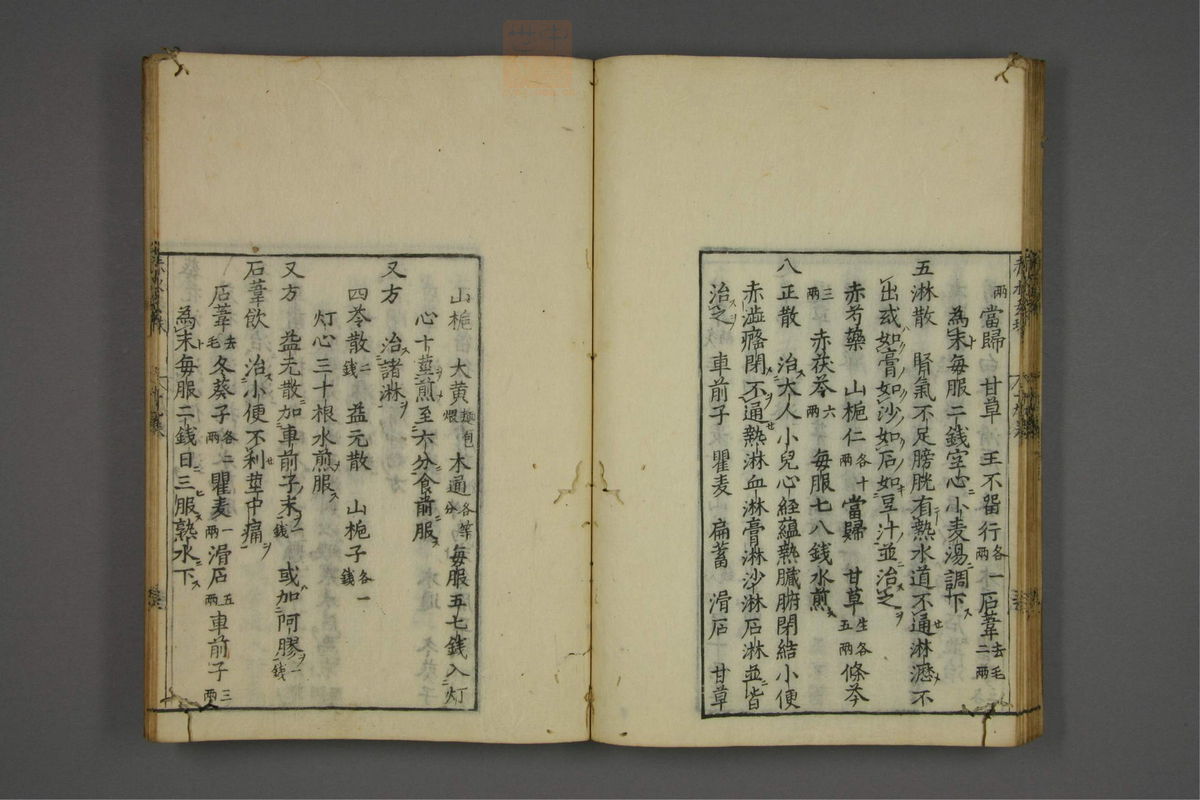 兩當歸 甘草 王不畱行各一兩石韋去毛二兩
為末毎服二錢空心小麦湯調下
五淋散 腎氣不足膀胱有熱水道不通淋瀝不
出或如膏如沙如石如豆汁並治之
赤芍藥 山梔仁各十兩當歸 甘草生各五兩條芩
三兩 赤茯苓六兩 毎服七八錢水煎
八正散 治大人小兒心経蘊熱臓腑閉結小便
赤澁癃閉不通熱淋血淋膏淋沙淋石淋並皆
治之 車前子 瞿麦 扁蓄 滑石 甘草
山梔 大黄麺包煨木通各等分毎服五七錢入灯
心十莖煎至六分食前服
又方 治諸淋
四苓散二錢 益元散 山梔子各一錢
灯心三十根水煎服
又方 益元散加車前子末一錢或加阿膠一錢
石韋飲 治小便不利莖中痛
石韋去毛冬葵子各二兩瞿麦一兩滑石五兩車前子三兩
為末毎服二錢日三服熱水下